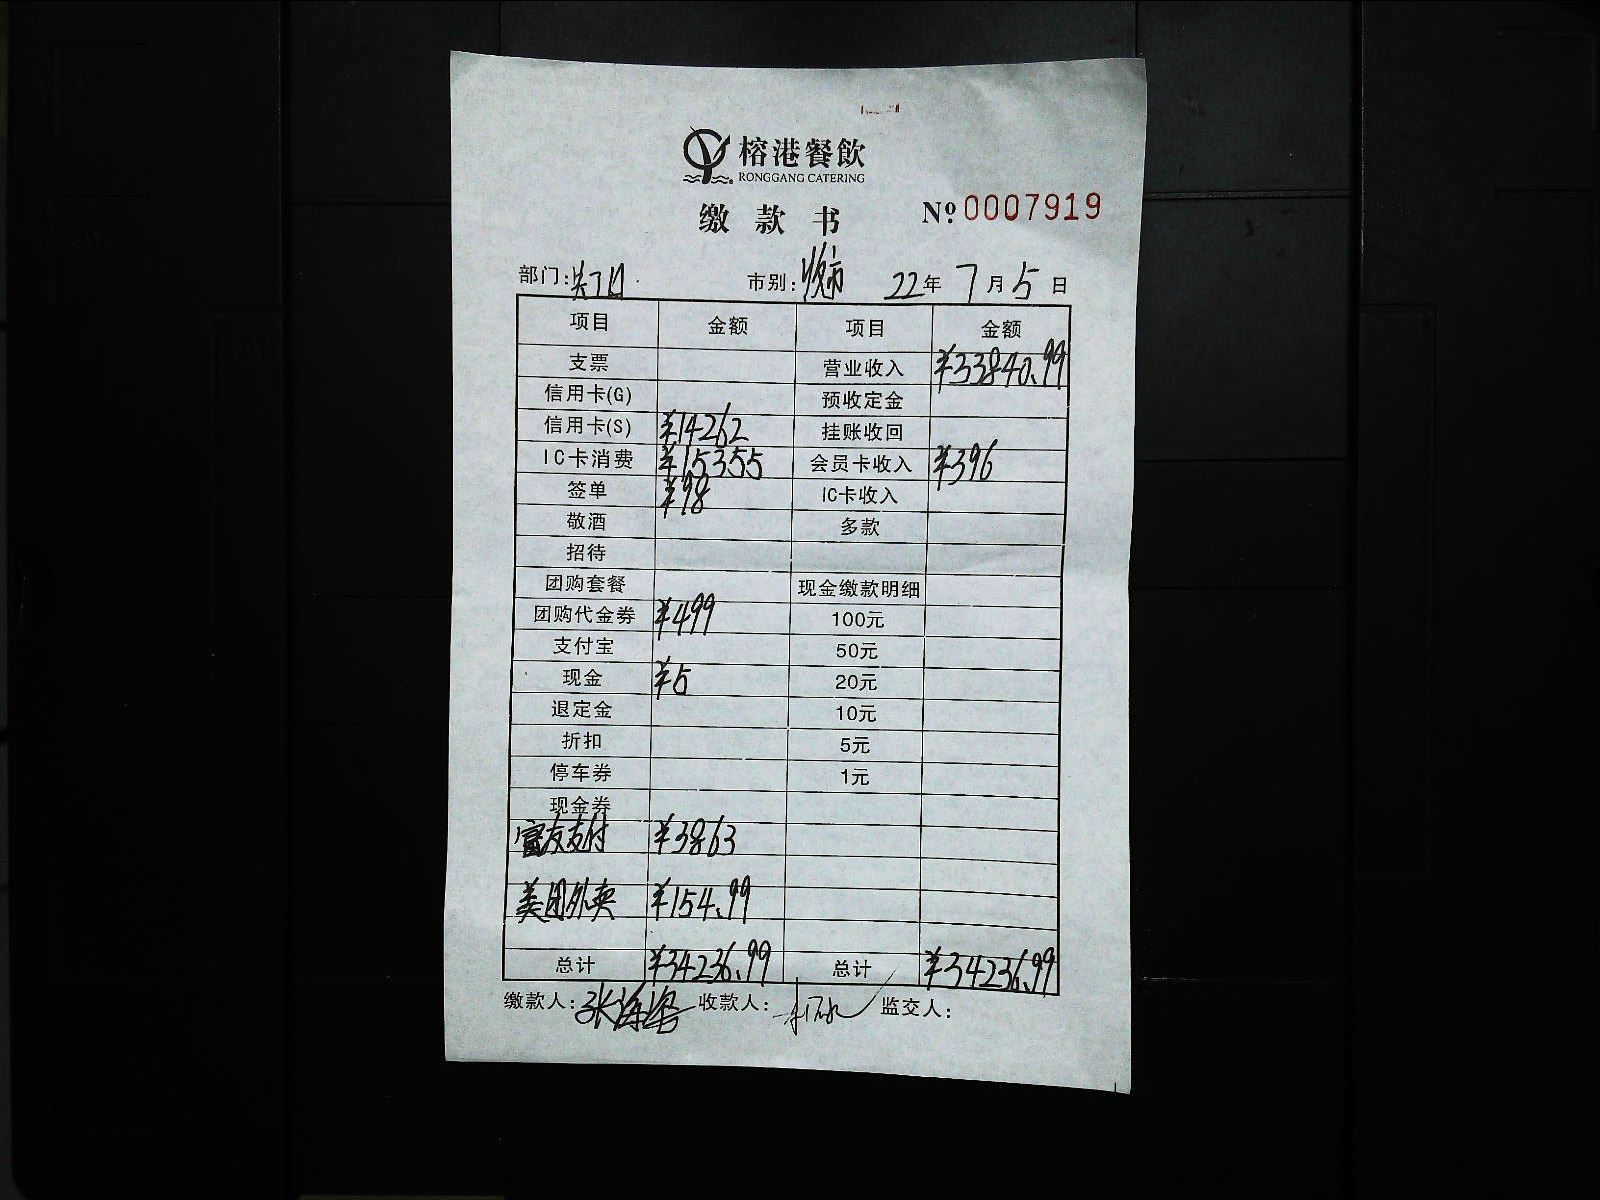 榕港餐飲
RONGGANG CATERING
缴款书 № 0007919
部门: 市别:晚市 22年7月5日
项目 金额 项目 金额
支票 营业收入 ¥33840.99
信用卡(G) 预收定金
信用卡(S) ¥14262 挂账收回
IC卡消费 ¥15355 会员卡收入 ¥396
签单 ¥98 IC卡收入
敬酒 多款
招待
团购套餐 现金缴款明细
团购代金券 ¥499 100元
支付宝 50元
现金 ¥5 20元
退定金 10元
折扣 5元
停车券 1元
现金券
富友支付 ¥3863
美团外卖 ¥154.99
总计 ¥34236.99 总计 ¥34236.99
缴款人:张海 收款人: 监交人: